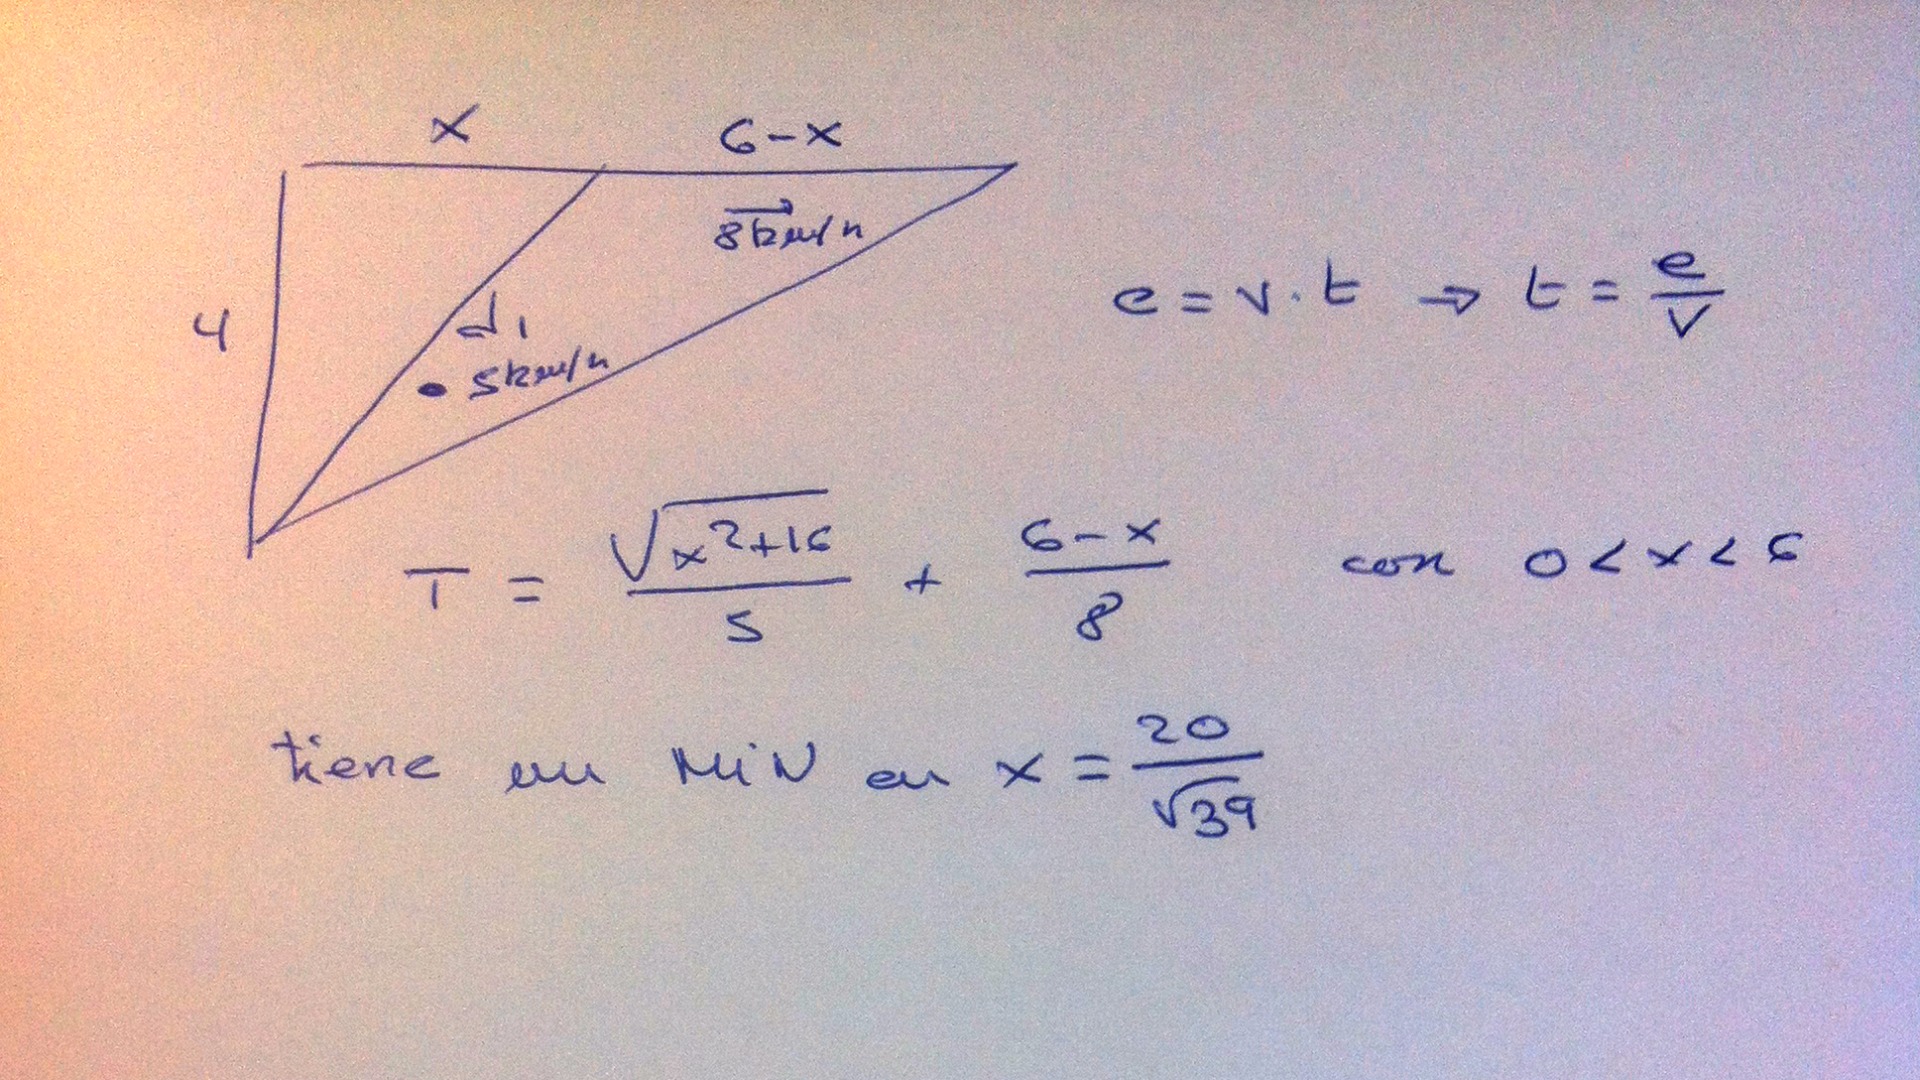 x 6-x
8km/h
4
d₁
5km/h
e = v · t ⇒ t = e/v
T = √(x²+16)/5 + (6-x)/8 con 0 < x < 6
tiene un MiN en x = 20/√39